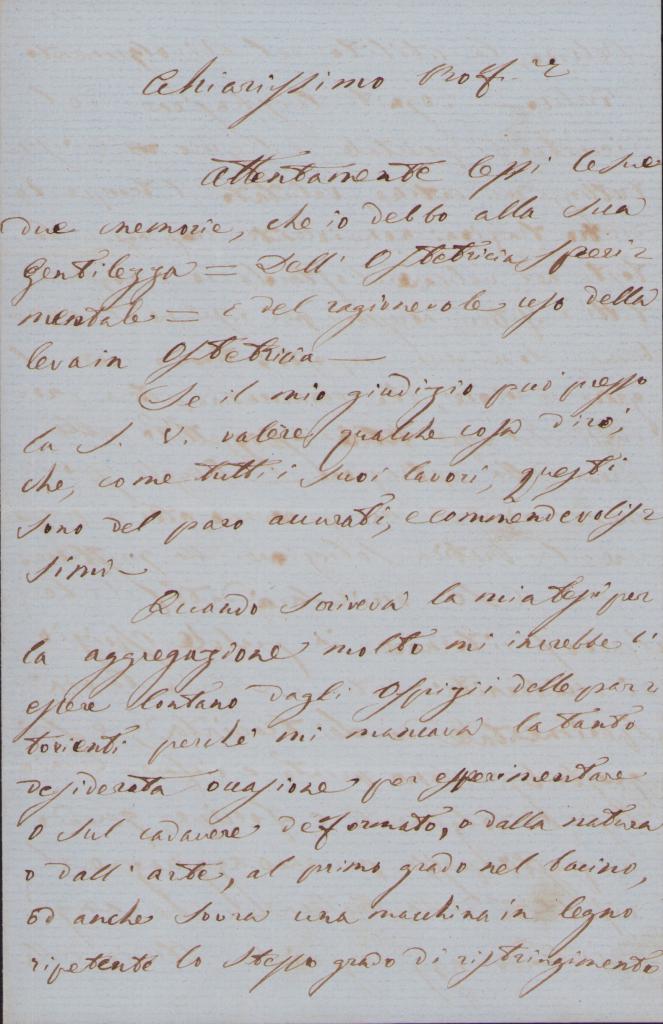 Chiarissimo Prof.re
Attentamente lessi le sue
due memorie, che io debbo alla sua
gentilezza = Dell' Ostetricia speri=
mentale = e del ragionevole uso della
leva in Ostetricia —
Se il mio giudizio può presso
la S. V. valere qualche cosa dirò,
che, come tutti i suoi lavori, questi
sono del paro accurati, e commendevolis=
simi —
Quando scriveva la mia tesi per
la aggregazione molto mi increbbe l'
essere lontano dagli Ospizii delle par=
torienti perchè mi mancava la tanto
desiderata occasione per esperimentare
o sul cadavere deformato, o dalla natura
o dall' arte, al primo grado nel bacino,
od anche sovra una macchina in legno
ripetente lo stesso grado di ristringimento